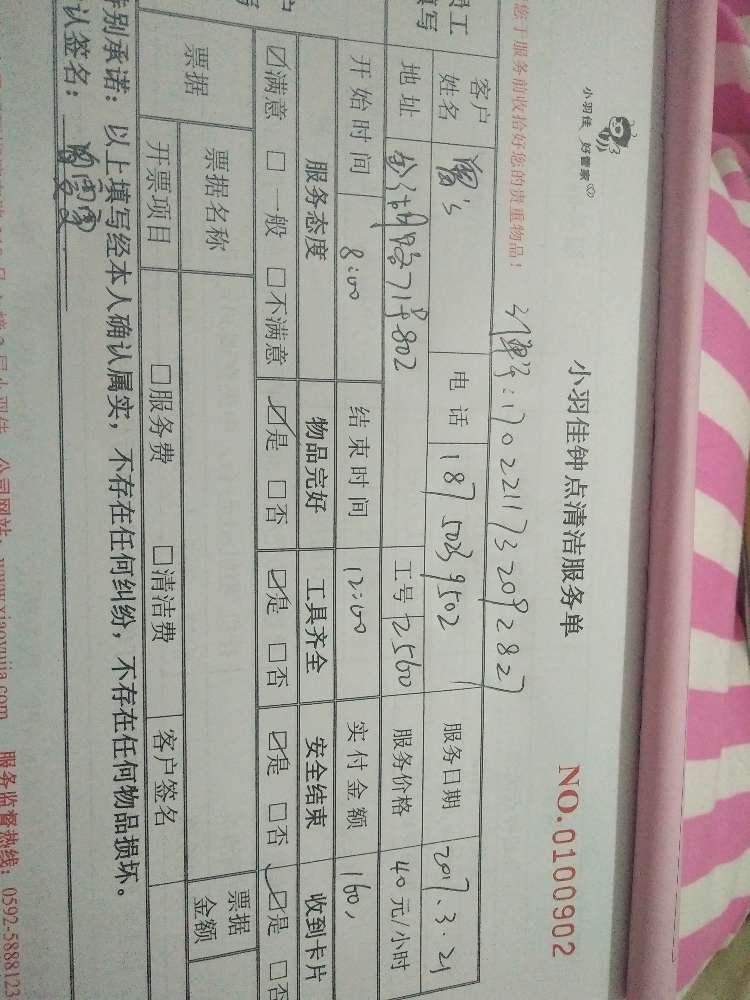 小羽佳 好管家
小羽佳钟点清洁服务单
NO.0100902
您于服务前收拾好您的贵重物品！
:1702211732092827
客户姓名 电话 18750239502 服务日期 2017.3.21
地址 802 工号 2560 服务价格 40元/小时
开始时间 8:00 结束时间 12:00 实付金额 160,
服务态度 物品完好 工具齐全 安全结束 收到卡片
☑满意 □一般 □不满意 ☑是 □否 ☑是 □否 ☑是 □否 ☑是 □否
票据 票据名称 票据金额
开票项目 □服务费 □清洁费 客户签名
特别承诺：以上填写经本人确认属实，不存在任何纠纷，不存在任何物品损坏。
认签名：
小羽佳 公司网站：www.xiaoyujia.com 服务监督热线：0592-5888123